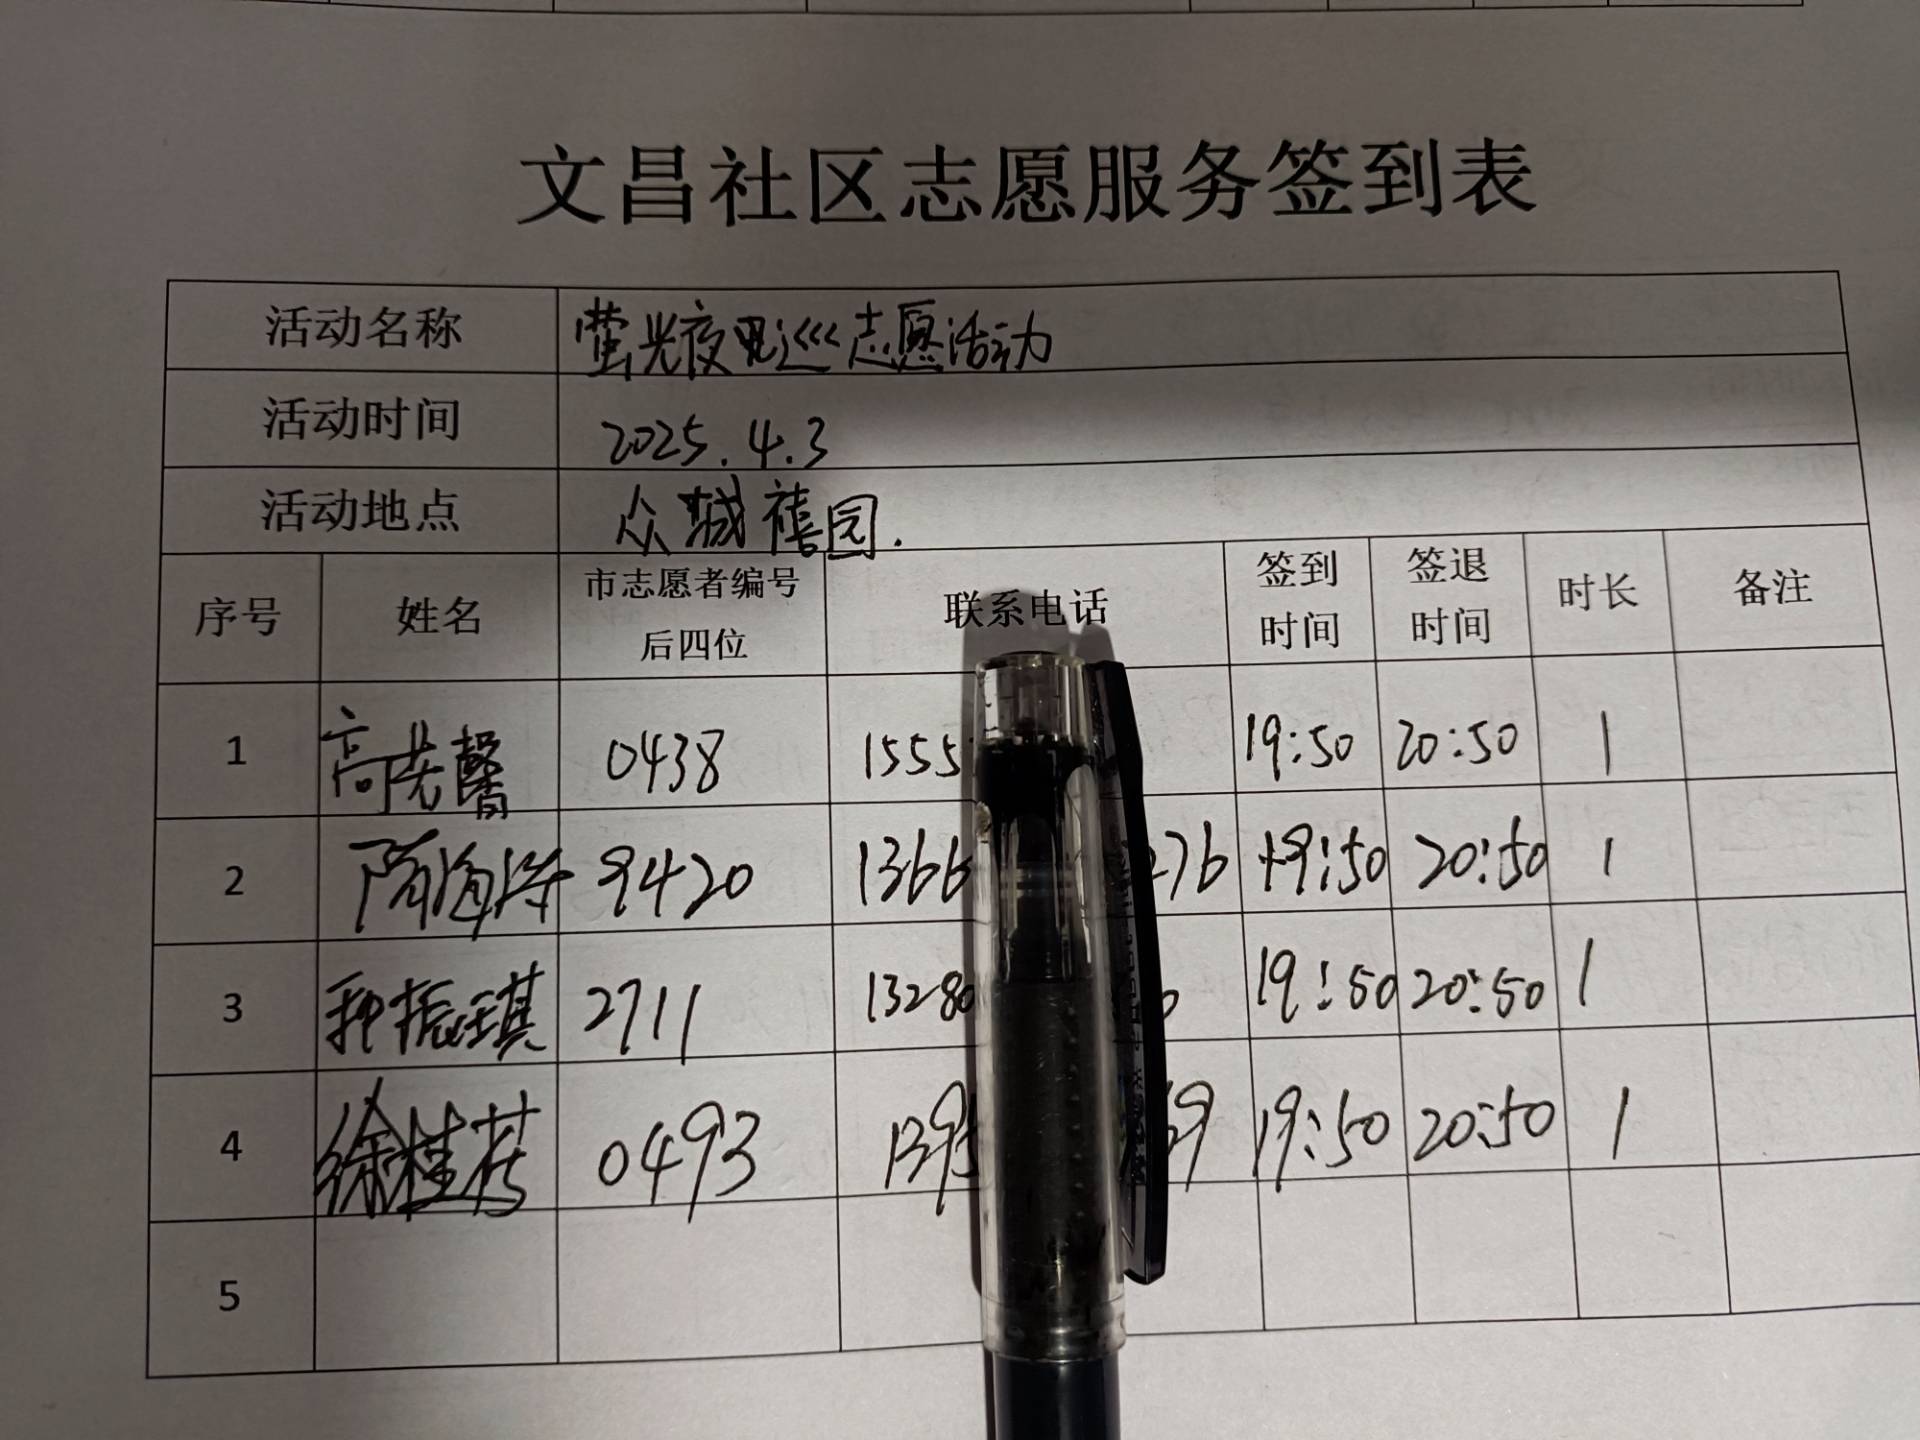 文昌社区志愿服务签到表
活动名称 萤光夜巡志愿活动
活动时间 2025.4.3
活动地点 众城禧园.
序号 姓名 市志愿者编号后四位 联系电话 签到时间 签退时间 时长 备注
1 高 馨 0438 1555 19:50 20:50 1
2 隋海 9420 1366 276 19:50 20:50 1
3 种振琪 2711 13280 19:50 20:50 1
4 徐桂芬 0493 1395 39 19:50 20:50 1
5